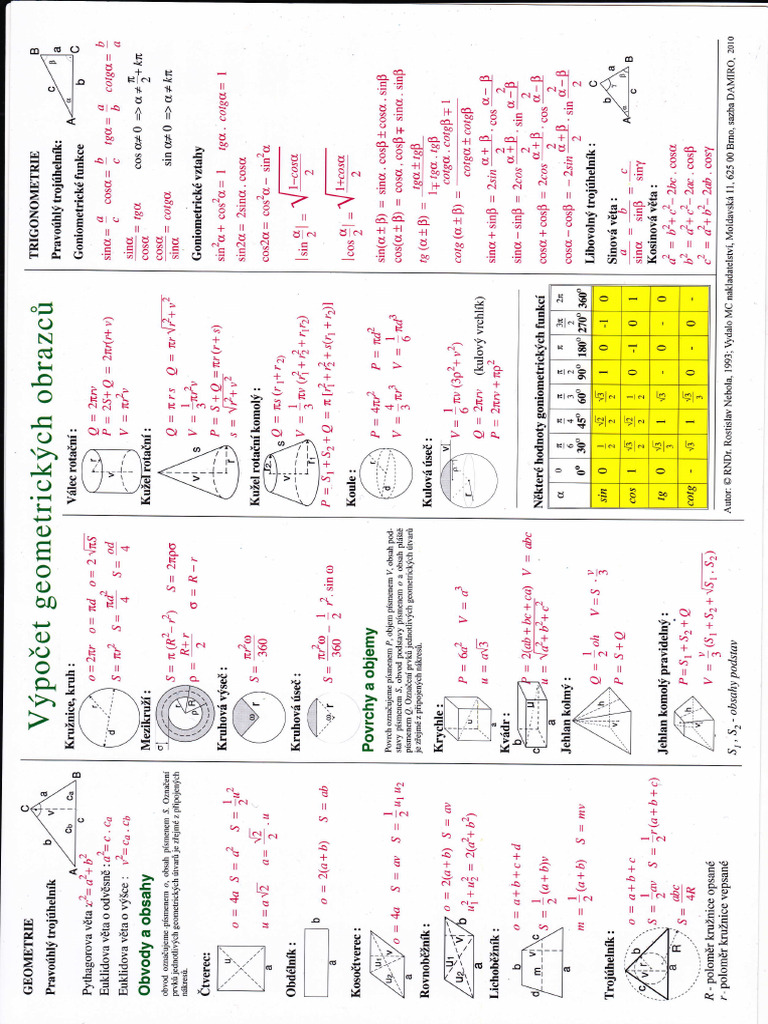 Výpočet geometrických obrazců
GEOMETRIE
Pravoúhlý trojúhelník
A
B
C
a
b
c
v
c_b
c_a
Pythagorova věta c² = a² + b²
Euklidova věta o odvěsně : a² = c . c_a
Euklidova věta o výšce : v² = c_a . c_b
Obvody a obsahy
obvod označujeme písmenem o, obsah písmenem S. Označení
prvků jednotlivých geometrických útvarů je zřejmé z připojených
nákresů.
Čtverec:
u
a
o = 4a S = a² S = 1/2 u²
u = a√2 a = √2/2 . u
Obdélník :
b
a
o = 2(a + b) S = ab
Kosočtverec :
u₁
u₂
v
a
o = 4a S = av S = 1/2 u₁ u₂
Rovnoběžník :
u₁
u₂
v
b
a
o = 2(a + b) S = av
u₁² + u₂² = 2(a² + b²)
Lichoběžník :
b
d
m
v
c
a
o = a + b + c + d
S = 1/2 (a + b)v
m = 1/2 (a + b) S = mv
Trojúhelník :
c
b
v
r
a
R
o = a + b + c
S = 1/2 av S = 1/2 r(a + b + c)
S = abc/4R
R - poloměr kružnice opsané
r - poloměr kružnice vepsané
Kružnice, kruh :
r
d
o = 2πr o = πd o = 2√πS
S = πr² S = πd²/4 S = od/4
Mezikruží :
r
ρ
R
σ
S = π (R² – r²) S = 2πρσ
ρ = R + r/2 σ = R – r
Kruhová výseč :
ω
r
S = πr²ω/360
Kruhová úseč :
ω
r
S = πr²ω/360 – 1/2 r² . sin ω
Povrchy a objemy
Povrch označujeme písmenem P, objem písmenem V, obsah pod-
stavy písmenem S, obvod podstavy písmenem o a obsah pláště
písmenem Q. Označení prvků jednotlivých geometrických útvarů
je zřejmé z připojených nákresů.
Krychle :
u
a
P = 6a² V = a³
u = a√3
Kvádr :
b
c
u
a
P = 2(ab + bc + ca) V = abc
u = √a² + b² + c²
Jehlan kolmý :
v
h
Q = 1/2 oh V = S . v/3
P = S + Q
Jehlan komolý pravidelný :
v
h
P = S₁ + S₂ + Q
V = v/3 (S₁ + S₂ + √S₁ . S₂)
S₁ , S₂ - obsahy podstav
Válec rotační :
r
v
Q = 2πrv
P = 2S + Q = 2πr(r + v)
V = πr²v
Kužel rotační :
s
v
r
Q = π r s Q = πr√r² + v²
V = 1/3 πr²v
P = S + Q = πr (r + s)
s = √r² + v²
Kužel rotační komolý :
r₂
s
v
r₁
Q = πs (r₁ + r₂)
V = 1/3 πv (r₁² + r₂² + r₁r₂)
P = S₁ + S₂ + Q = π [r₁² + r₂² + s(r₁ + r₂)]
Koule :
r
d
P = 4πr² P = πd²
V = 4/3 πr³ V = 1/6 πd³
Kulová úseč :
v
ρ
r
V = 1/6 πv (3ρ² + v²)
Q = 2πrv (kulový vrchlík)
P = 2πrv + πρ²
Některé hodnoty goniometrických funkcí
α 0 π/6 π/4 π/3 π/2 π 3π/2 2π
0° 30° 45° 60° 90° 180° 270° 360°
sin 0 1/2 √2/2 √3/2 1 0 -1 0
cos 1 √3/2 √2/2 1/2 0 -1 0 1
tg 0 √3/3 1 √3 - 0 - 0
cotg - √3 1 √3/3 0 - 0 -
TRIGONOMETRIE
Pravoúhlý trojúhelník:
A
B
C
a
b
c
α
β
Goniometrické funkce
sinα = a/c cosα = b/c tgα = a/b cotgα = b/a
sinα/cosα = tgα cosα ≠ 0 => α ≠ π/2 + kπ
cosα/sinα = cotgα sinα ≠ 0 => α ≠ kπ
Goniometrické vztahy
sin²α + cos²α = 1 tgα . cotgα = 1
sin2α = 2sinα . cosα
cos2α = cos²α – sin²α
|sin α/2| = √1–cosα/2
|cos α/2| = √1+cosα/2
sin(α ± β) = sinα . cosβ ± cosα . sinβ
cos(α ± β) = cosα . cosβ ∓ sinα . sinβ
tg (α ± β) = tgα ± tgβ/1∓ tgα . tgβ
cotg (α ± β) = cotgα . cotgβ ∓ 1/cotgα ± cotgβ
sinα + sinβ = 2sin α + β/2 . cos α – β/2
sinα – sinβ = 2cos α + β/2 . sin α – β/2
cosα + cosβ = 2cos α + β/2 . cos α – β/2
cosα – cosβ = – 2sin α + β/2 . sin α – β/2
Libovolný trojúhelník :
A
B
C
a
b
c
α
β
γ
Sinová věta :
a/sinα = b/sinβ = c/sinγ
Kosinová věta :
a² = b² + c² – 2bc . cosα
b² = a² + c² – 2ac . cosβ
c² = a² + b² – 2ab . cosγ
Autor: © RNDr. Rostislav Nebola, 1993; Vydalo MC nakladatelství, Moldavská 11, 625 00 Brno, sazba DAMIRO, 2010